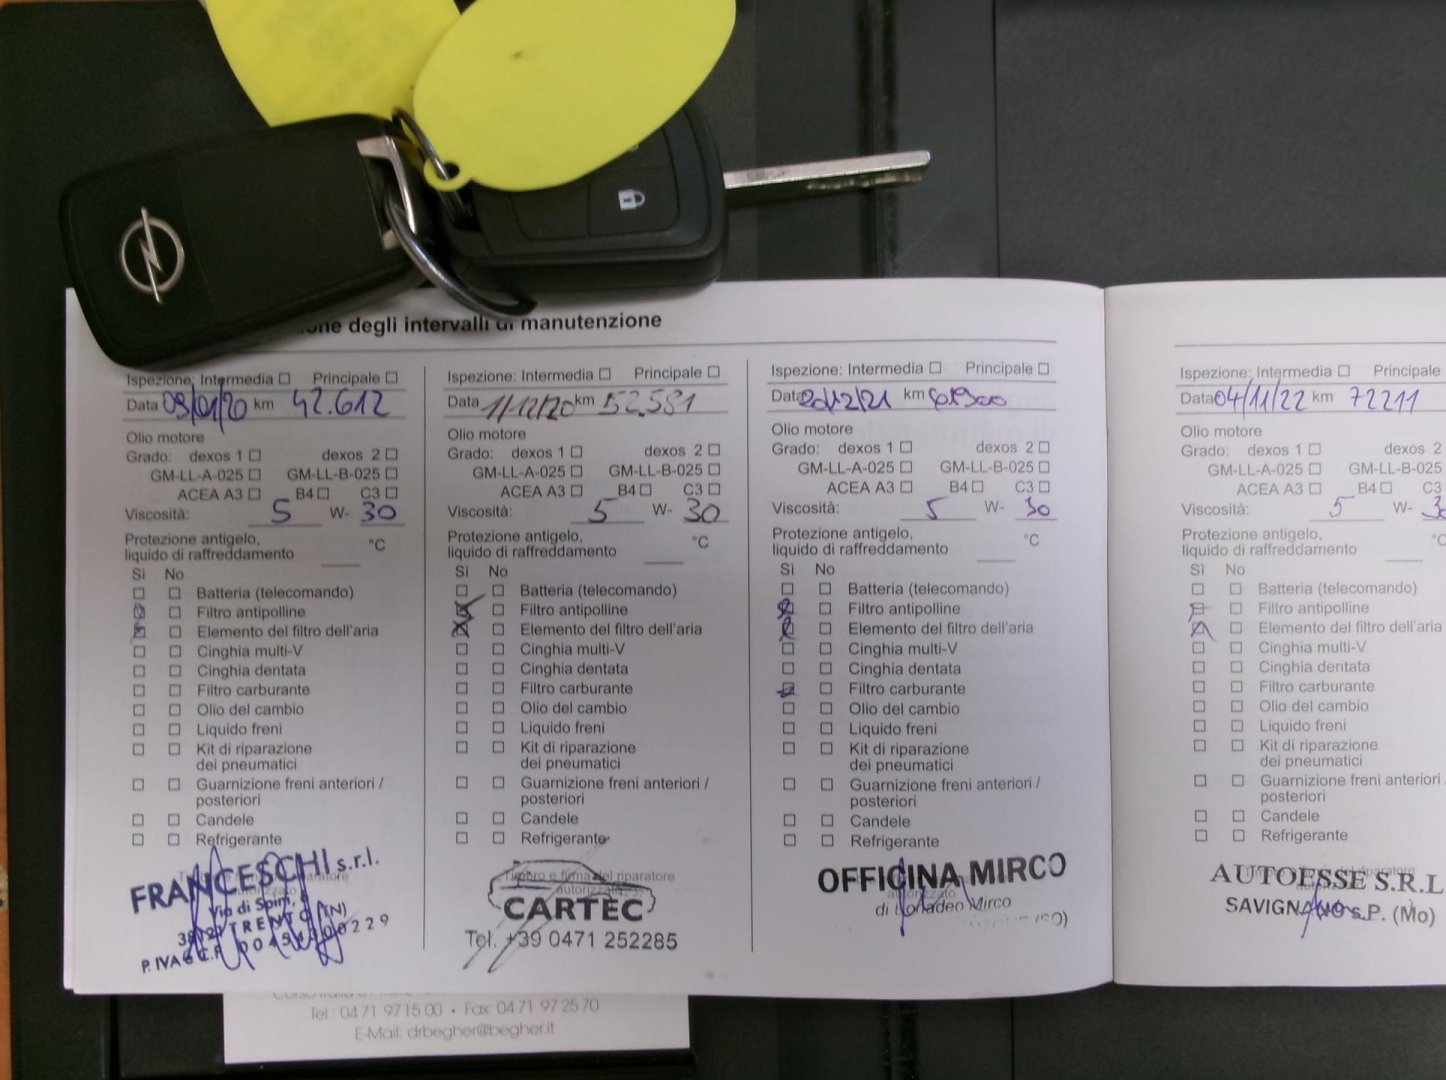 degli intervalli di manutenzione
Ispezione: Intermedia ☐ Principale ☐
Data 09/01/20 km 42.612
Olio motore
Grado: dexos 1 ☐ dexos 2 ☐
GM-LL-A-025 ☐ GM-LL-B-025 ☐
ACEA A3 ☐ B4 ☐ C3 ☐
Viscosità: 5 W- 30
Protezione antigelo,
liquido di raffreddamento °C
Sì No
Batteria (telecomando)
Filtro antipolline
Elemento del filtro dell'aria
Cinghia multi-V
Cinghia dentata
Filtro carburante
Olio del cambio
Liquido freni
Kit di riparazione
dei pneumatici
Guarnizione freni anteriori /
posteriori
Candele
Refrigerante
FRANCESCHI s.r.l.
Via di Spini,
TRENTO (TN)
P. IVA e C.F.
Ispezione: Intermedia ☐ Principale ☐
Data 1/12/20 km 52.581
Olio motore
Grado: dexos 1 ☐ dexos 2 ☐
GM-LL-A-025 ☐ GM-LL-B-025 ☐
ACEA A3 ☐ B4 ☐ C3 ☐
Viscosità: 5 W- 30
Protezione antigelo,
liquido di raffreddamento °C
Sì No
Batteria (telecomando)
Filtro antipolline
Elemento del filtro dell'aria
Cinghia multi-V
Cinghia dentata
Filtro carburante
Olio del cambio
Liquido freni
Kit di riparazione
dei pneumatici
Guarnizione freni anteriori /
posteriori
Candele
Refrigerante
Timbro e firma del riparatore
autorizzato
CARTEC
Tel. +39 0471 252285
Ispezione: Intermedia ☐ Principale ☐
Data 20/12/21 km
Olio motore
Grado: dexos 1 ☐ dexos 2 ☐
GM-LL-A-025 ☐ GM-LL-B-025 ☐
ACEA A3 ☐ B4 ☐ C3 ☐
Viscosità: 5 W- 30
Protezione antigelo,
liquido di raffreddamento °C
Sì No
Batteria (telecomando)
Filtro antipolline
Elemento del filtro dell'aria
Cinghia multi-V
Cinghia dentata
Filtro carburante
Olio del cambio
Liquido freni
Kit di riparazione
dei pneumatici
Guarnizione freni anteriori /
posteriori
Candele
Refrigerante
OFFICINA MIRCO
autorizzato
di Mirco
Ispezione: Intermedia ☐ Principale
Data 04/11/22 km 72211
Olio motore
Grado: dexos 1 ☐ dexos 2
GM-LL-A-025 ☐ GM-LL-B-025
ACEA A3 ☐ B4 ☐ C3
Viscosità: 5 W-
Protezione antigelo,
liquido di raffreddamento
Sì No
Batteria (telecomando)
Filtro antipolline
Elemento del filtro dell'aria
Cinghia multi-V
Cinghia dentata
Filtro carburante
Olio del cambio
Liquido freni
Kit di riparazione
dei pneumatici
Guarnizione freni anteriori
posteriori
Candele
Refrigerante
AUTOESSE S.R.L
SAVIGNANO s.P. (Mo)
Tel.: 0471 971500 • Fax: 0471 972570
E-Mail: drbegher@begher.it